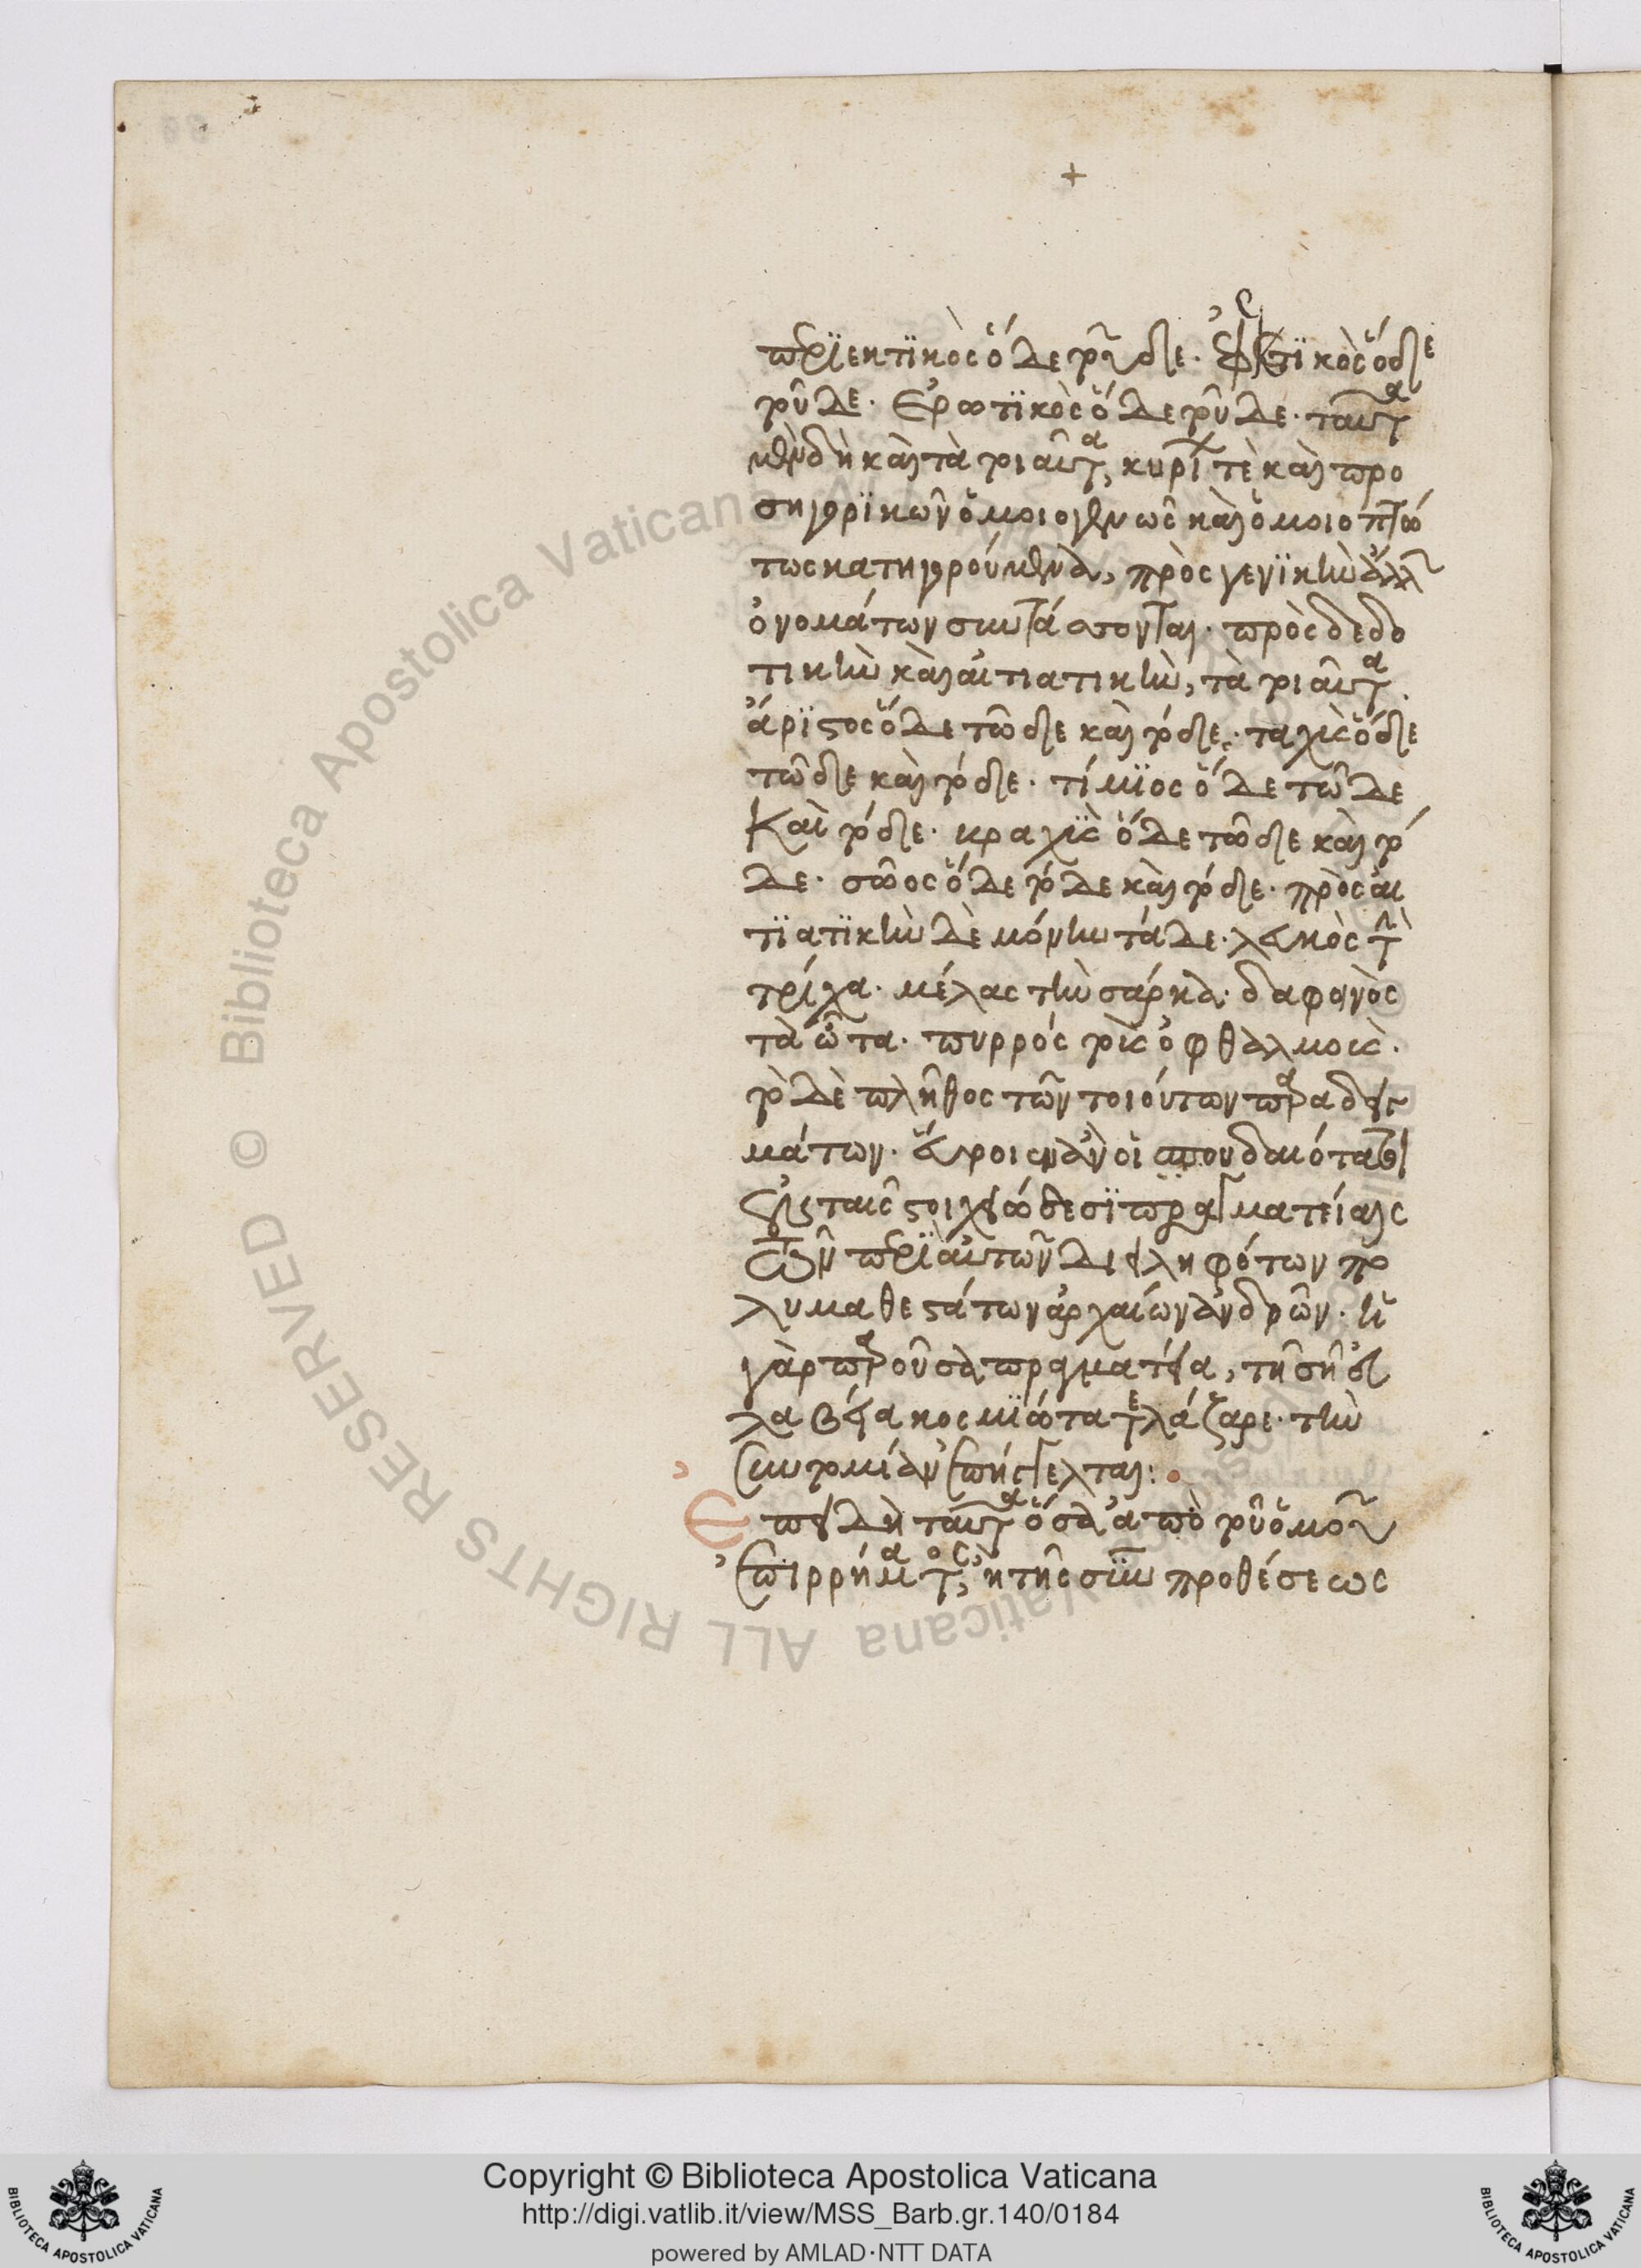 +
περιεκτικὸς ὅδε τοῦδε. ἐφεκτικὸς ὅδε
τοῦδε. ἐρωτικὸς ὅδε τοῦδε. ταῦτα
μὲν δὴ καὶ τὰ τοιαῦτα, κυρί τὲ καὶ προ
σηγορικῶν ὁμοιογενῶς καὶ ὁμοιοπτώ
τως κατηγορούμενα, πρὸς γενικὴν
ὀνομάτων συντάσσονται. πρὸς δὲ δο
τικὴν καὶ αἰτιατικὴν, τὰ τοιαῦτα.
ἄριστος ὅδε τῶδε καὶ τόδε. ταχὺς ὅδε
τῶδε καὶ τόδε. τίμιος ὅδε τῶδε
Καὶ τόδε. τραχὺς ὅδε τῶδε καὶ τό
δε. σῶος ὅδε τόδε καὶ τόδε. πρὸς αἰ
τιατικὴν δὲ μόνην τάδε. λευκὸς τὴν
τρίχα. μέλας τὴν σάρκα. δαφοινὸς
τὰ ὦτα. πυρρός τοὺς ὀφθαλμοὺς.
τὸ δὲ πλῆθος τῶν τοιούτων παραδειγ
μάτων. εὕροιεν ἂν οἱ σπουδαιότατοι
ἐν ταῖς στοιχειώδεσι πραγματείαις
τῶν περὶ αὐτῶν διειληφότων πο
λυμαθεστάτων ἀρχαίων ἀνδρῶν. ἡ
γὰρ παροῦσα πραγματεία, τῇ σῇ εὐ
λαβείᾳ κοσμιώτατε λάζαρε. τὴν
συντομίαν ἐπήγγελται:
Ἐπεὶ δὴ ταῦτα ὅσα ἀπὸ τοῦ ὁμοῦ
ἐπιρρήματος, ἢ τῆς σὺν προθέσεως
Copyright © Biblioteca Apostolica Vaticana
http://digi.vatlib.it/view/MSS_Barb.gr.140/0184
powered by AMLAD·NTT DATA
BIBLIOTECA APOSTOLICA VATICANA
BIBLIOTECA APOSTOLICA VATICANA
© Biblioteca Apostolica Vaticana ALL RIGHTS RESERVED